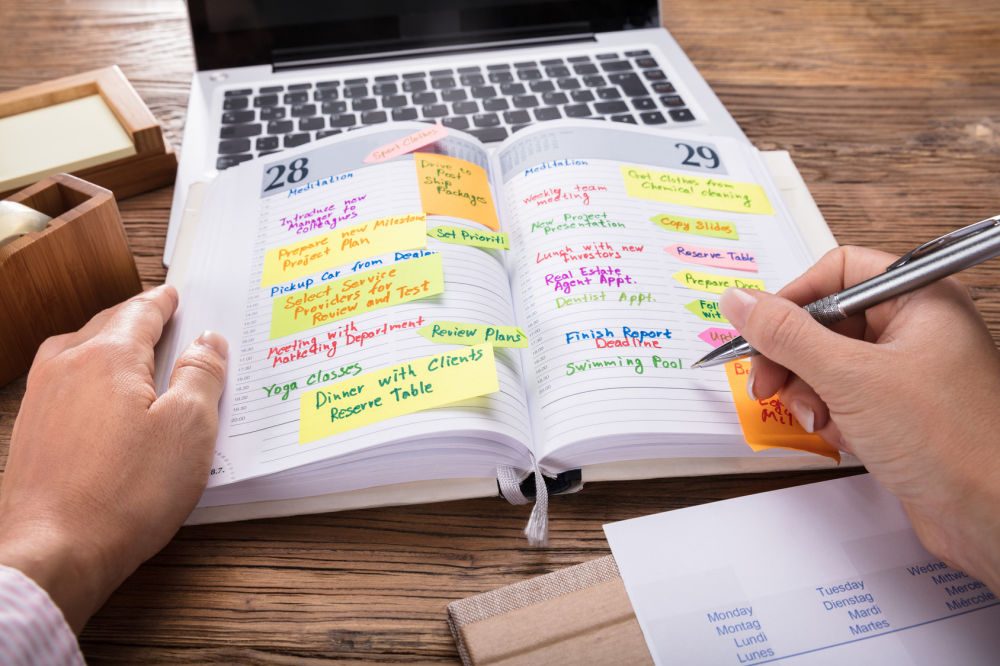 28
Meditation
Sport Clothes
Drive to
Post
Ship
Packages
Introduce new
Manager to
colleagues
Prepare new Milestone
Project Plan
Set Prioriti
Pickup Car from Dealer
Select Service
Providers for
Review and Test
Meeting with
Marketing Department
Review Plans
Yoga Classes
Dinner with Clients
Reserve Table
8.7.
29
Meditation
Get Clothes from
Chemical cleaning
Weekly team
meeting
New Project
Presentation
Copy Slides
Lunch with new
Investors
Reserve Table
Real Estate
Agent Appt.
Prepare Docs
Dentist Appt.
Finish Report
Deadline
Swimming Pool
Monday
Montag
Lundi
Lunes
Tuesday
Dienstag
Mardi
Martes
Wedne
Mittw
Merc
Miérc